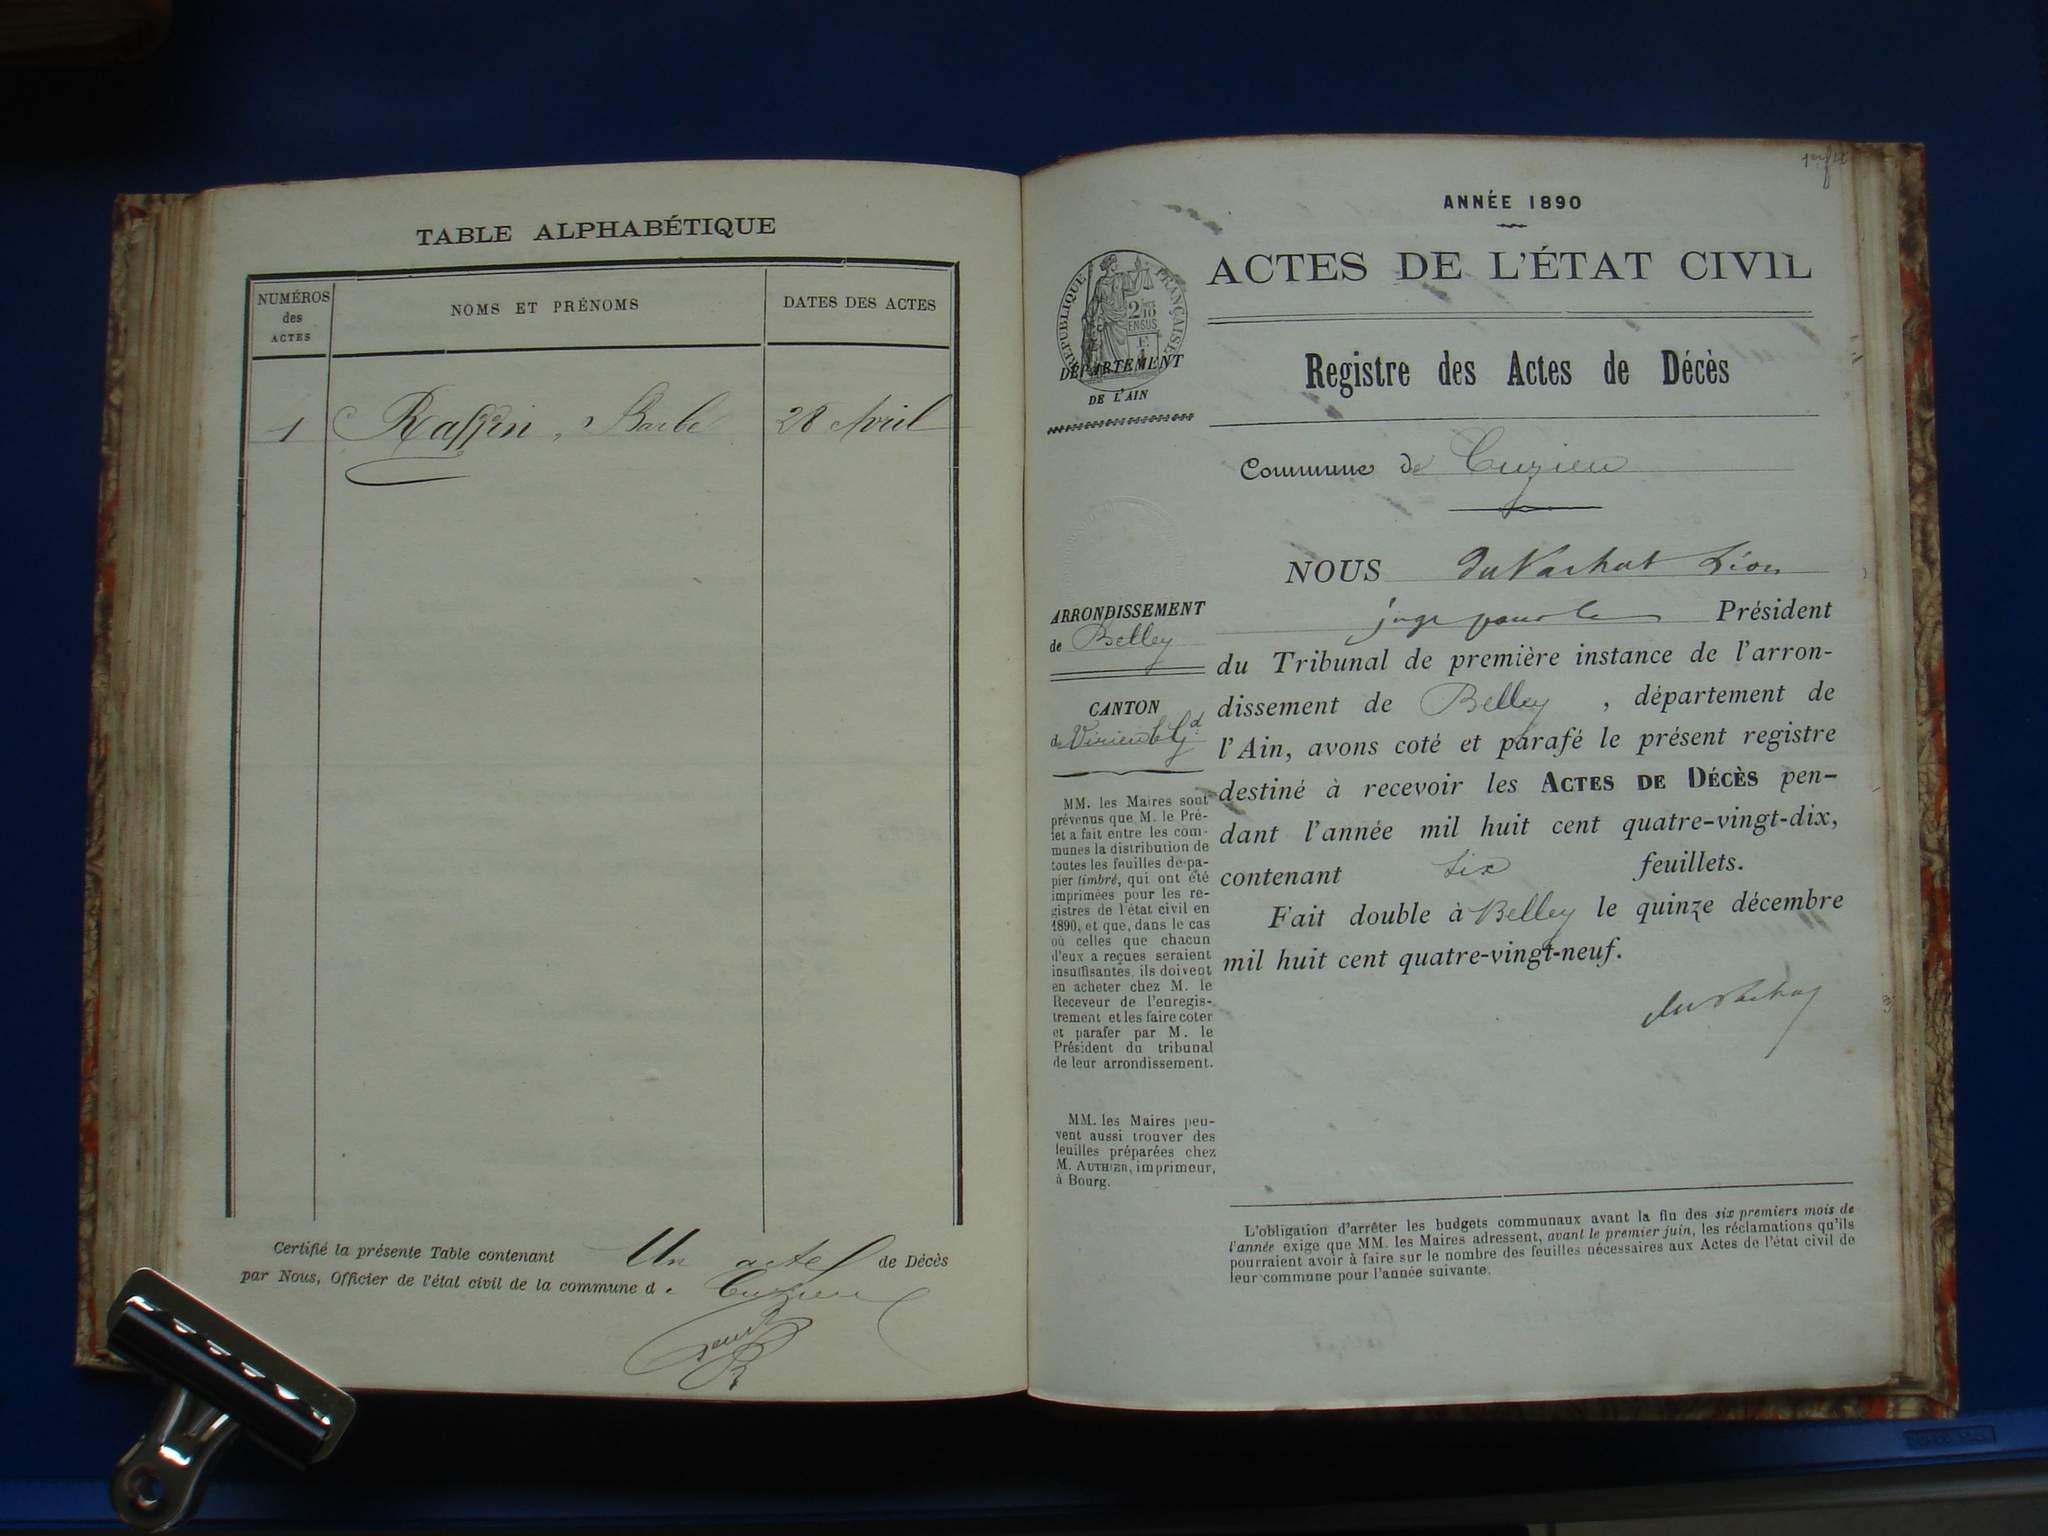 TABLE ALPHABÉTIQUE
NUMÉROS
des
ACTES
NOMS ET PRÉNOMS
DATES DES ACTES
1 Raffin, Barbe 28 Avril
Certifié la présente Table contenant Un acte de Décès
par Nous, Officier de l'état civil de la commune d e Cuzieu
ANNÉE 1890
ACTES DE L'ÉTAT CIVIL
RÉPUBLIQUE FRANÇAISE
DÉPARTEMENT
DE L'AIN
Registre des Actes de Décès
Commune de Cuzieu
ARRONDISSEMENT
de Belley
CANTON
de Virieu le Gd
MM. les Maires sont
prévenus que M. le Pré-
fet a fait entre les com-
munes la distribution de
toutes les feuilles de pa-
pier timbré, qui ont été
imprimées pour les re-
gistres de l'état civil en
1890, et que, dans le cas
où celles que chacun
d'eux a reçues seraient
insuffisantes, ils doivent
en acheter chez M. le
Receveur de l'enregis-
trement et les faire coter
et parafer par M. le
Président du tribunal
de leur arrondissement.
MM. les Maires peu-
vent aussi trouver des
feuilles préparées chez
M. AUTHIER, imprimeur,
à Bourg.
NOUS du Vachat Léon
juge pour le Président
du Tribunal de première instance de l'arron-
dissement de Belley, département de
l'Ain, avons coté et parafé le présent registre
destiné à recevoir les ACTES DE DÉCÈS pen-
dant l'année mil huit cent quatre-vingt-dix,
contenant six feuillets.
Fait double à Belley le quinze décembre
mil huit cent quatre-vingt-neuf.
du Vachat
L'obligation d'arrêter les budgets communaux avant la fin des six premiers mois de
l'année exige que MM. les Maires adressent, avant le premier juin, les réclamations qu'ils
pourraient avoir à faire sur le nombre des feuilles nécessaires aux Actes de l'état civil de
leur commune pour l'année suivante.